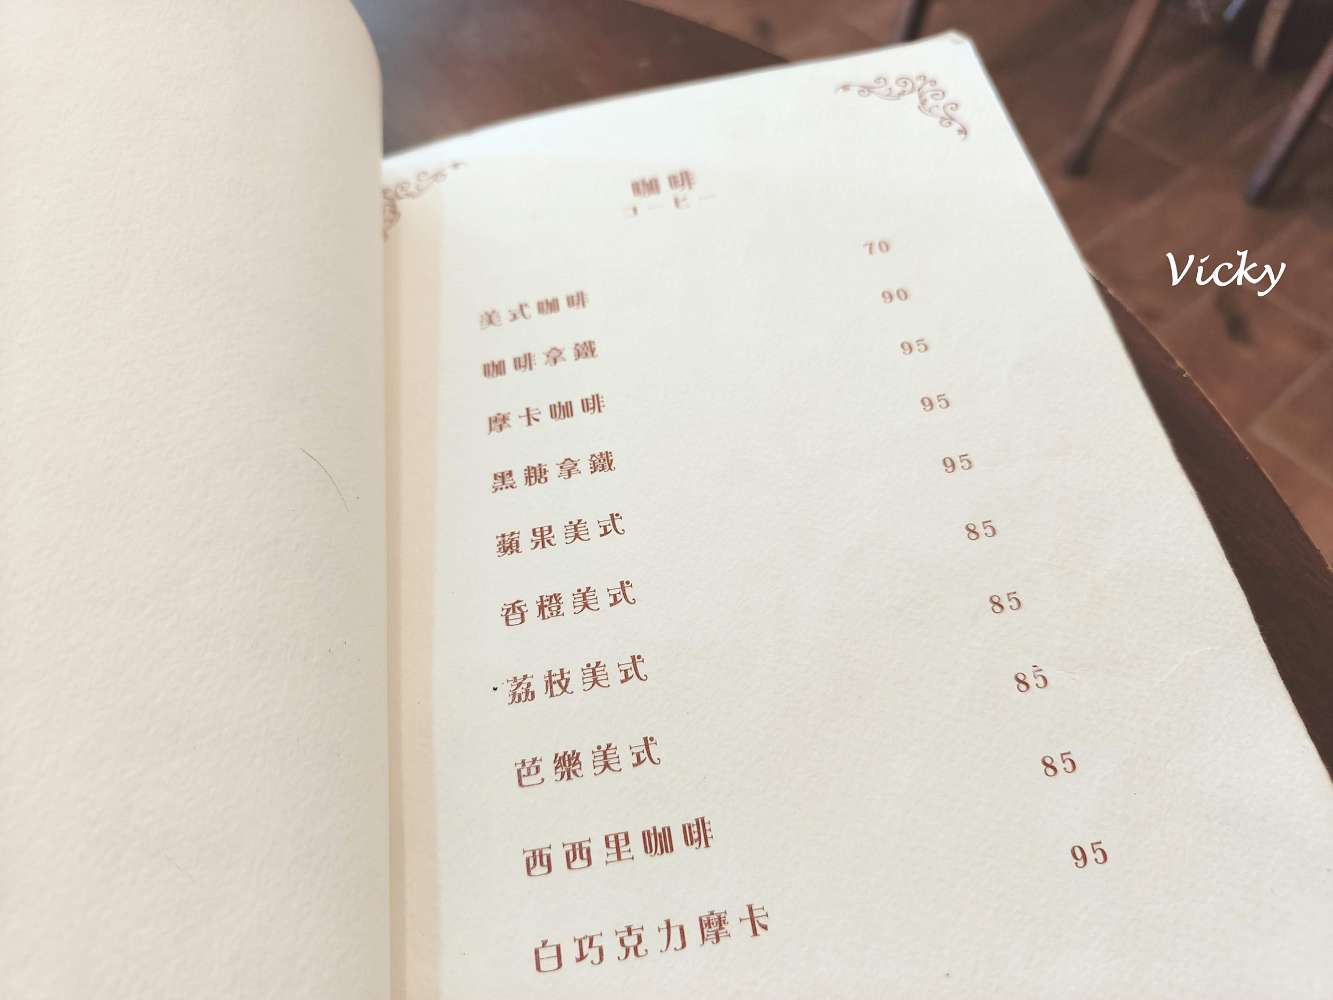 咖啡
コーヒー
美式咖啡 70
咖啡拿鐵 90
摩卡咖啡 95
黑糖拿鐵 95
蘋果美式 95
香橙美式 85
荔枝美式 85
芭樂美式 85
西西里咖啡 85
白巧克力摩卡 95
Vicky